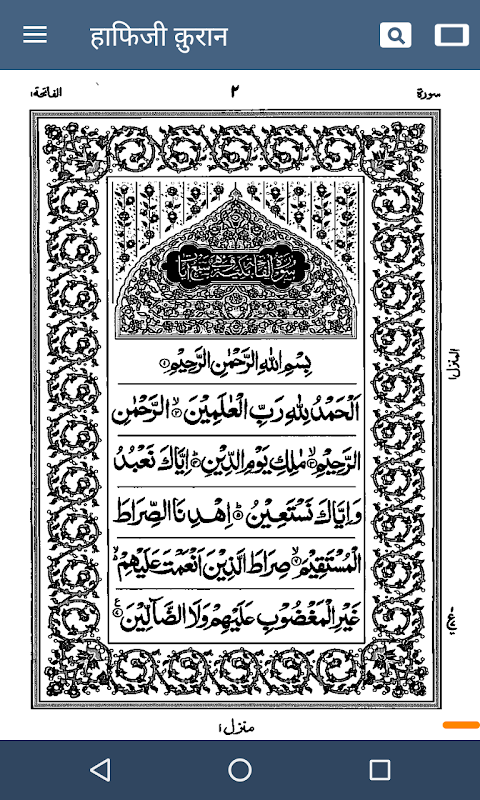 हाफिजी क़ुरान
سورة ٢ الفاتحة ١
بِسْمِ اللهِ الرَّحْمٰنِ الرَّحِيْمِ ۝١
اَلْحَمْدُ لِلّٰهِ رَبِّ الْعٰلَمِيْنَ ۝٢ الرَّحْمٰنِ
الرَّحِيْمِ ۝٣ مٰلِكِ يَوْمِ الدِّيْنِ ۝٤ اِيَّاكَ نَعْبُدُ
وَاِيَّاكَ نَسْتَعِيْنُ ۝٥ اِهْدِنَا الصِّرَاطَ
الْمُسْتَقِيْمَ ۝٦ صِرَاطَ الَّذِيْنَ اَنْعَمْتَ عَلَيْهِمْ
غَيْرِ الْمَغْضُوْبِ عَلَيْهِمْ وَلَا الضَّآلِّيْنَ
المنزل ١
منزل ١